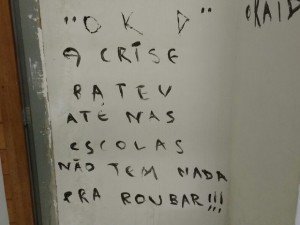 "O K D"
A CRISE
BATEU
ATÉ NAS
ESCOLAS
NÃO TEM NADA
PRA ROUBAR!!!